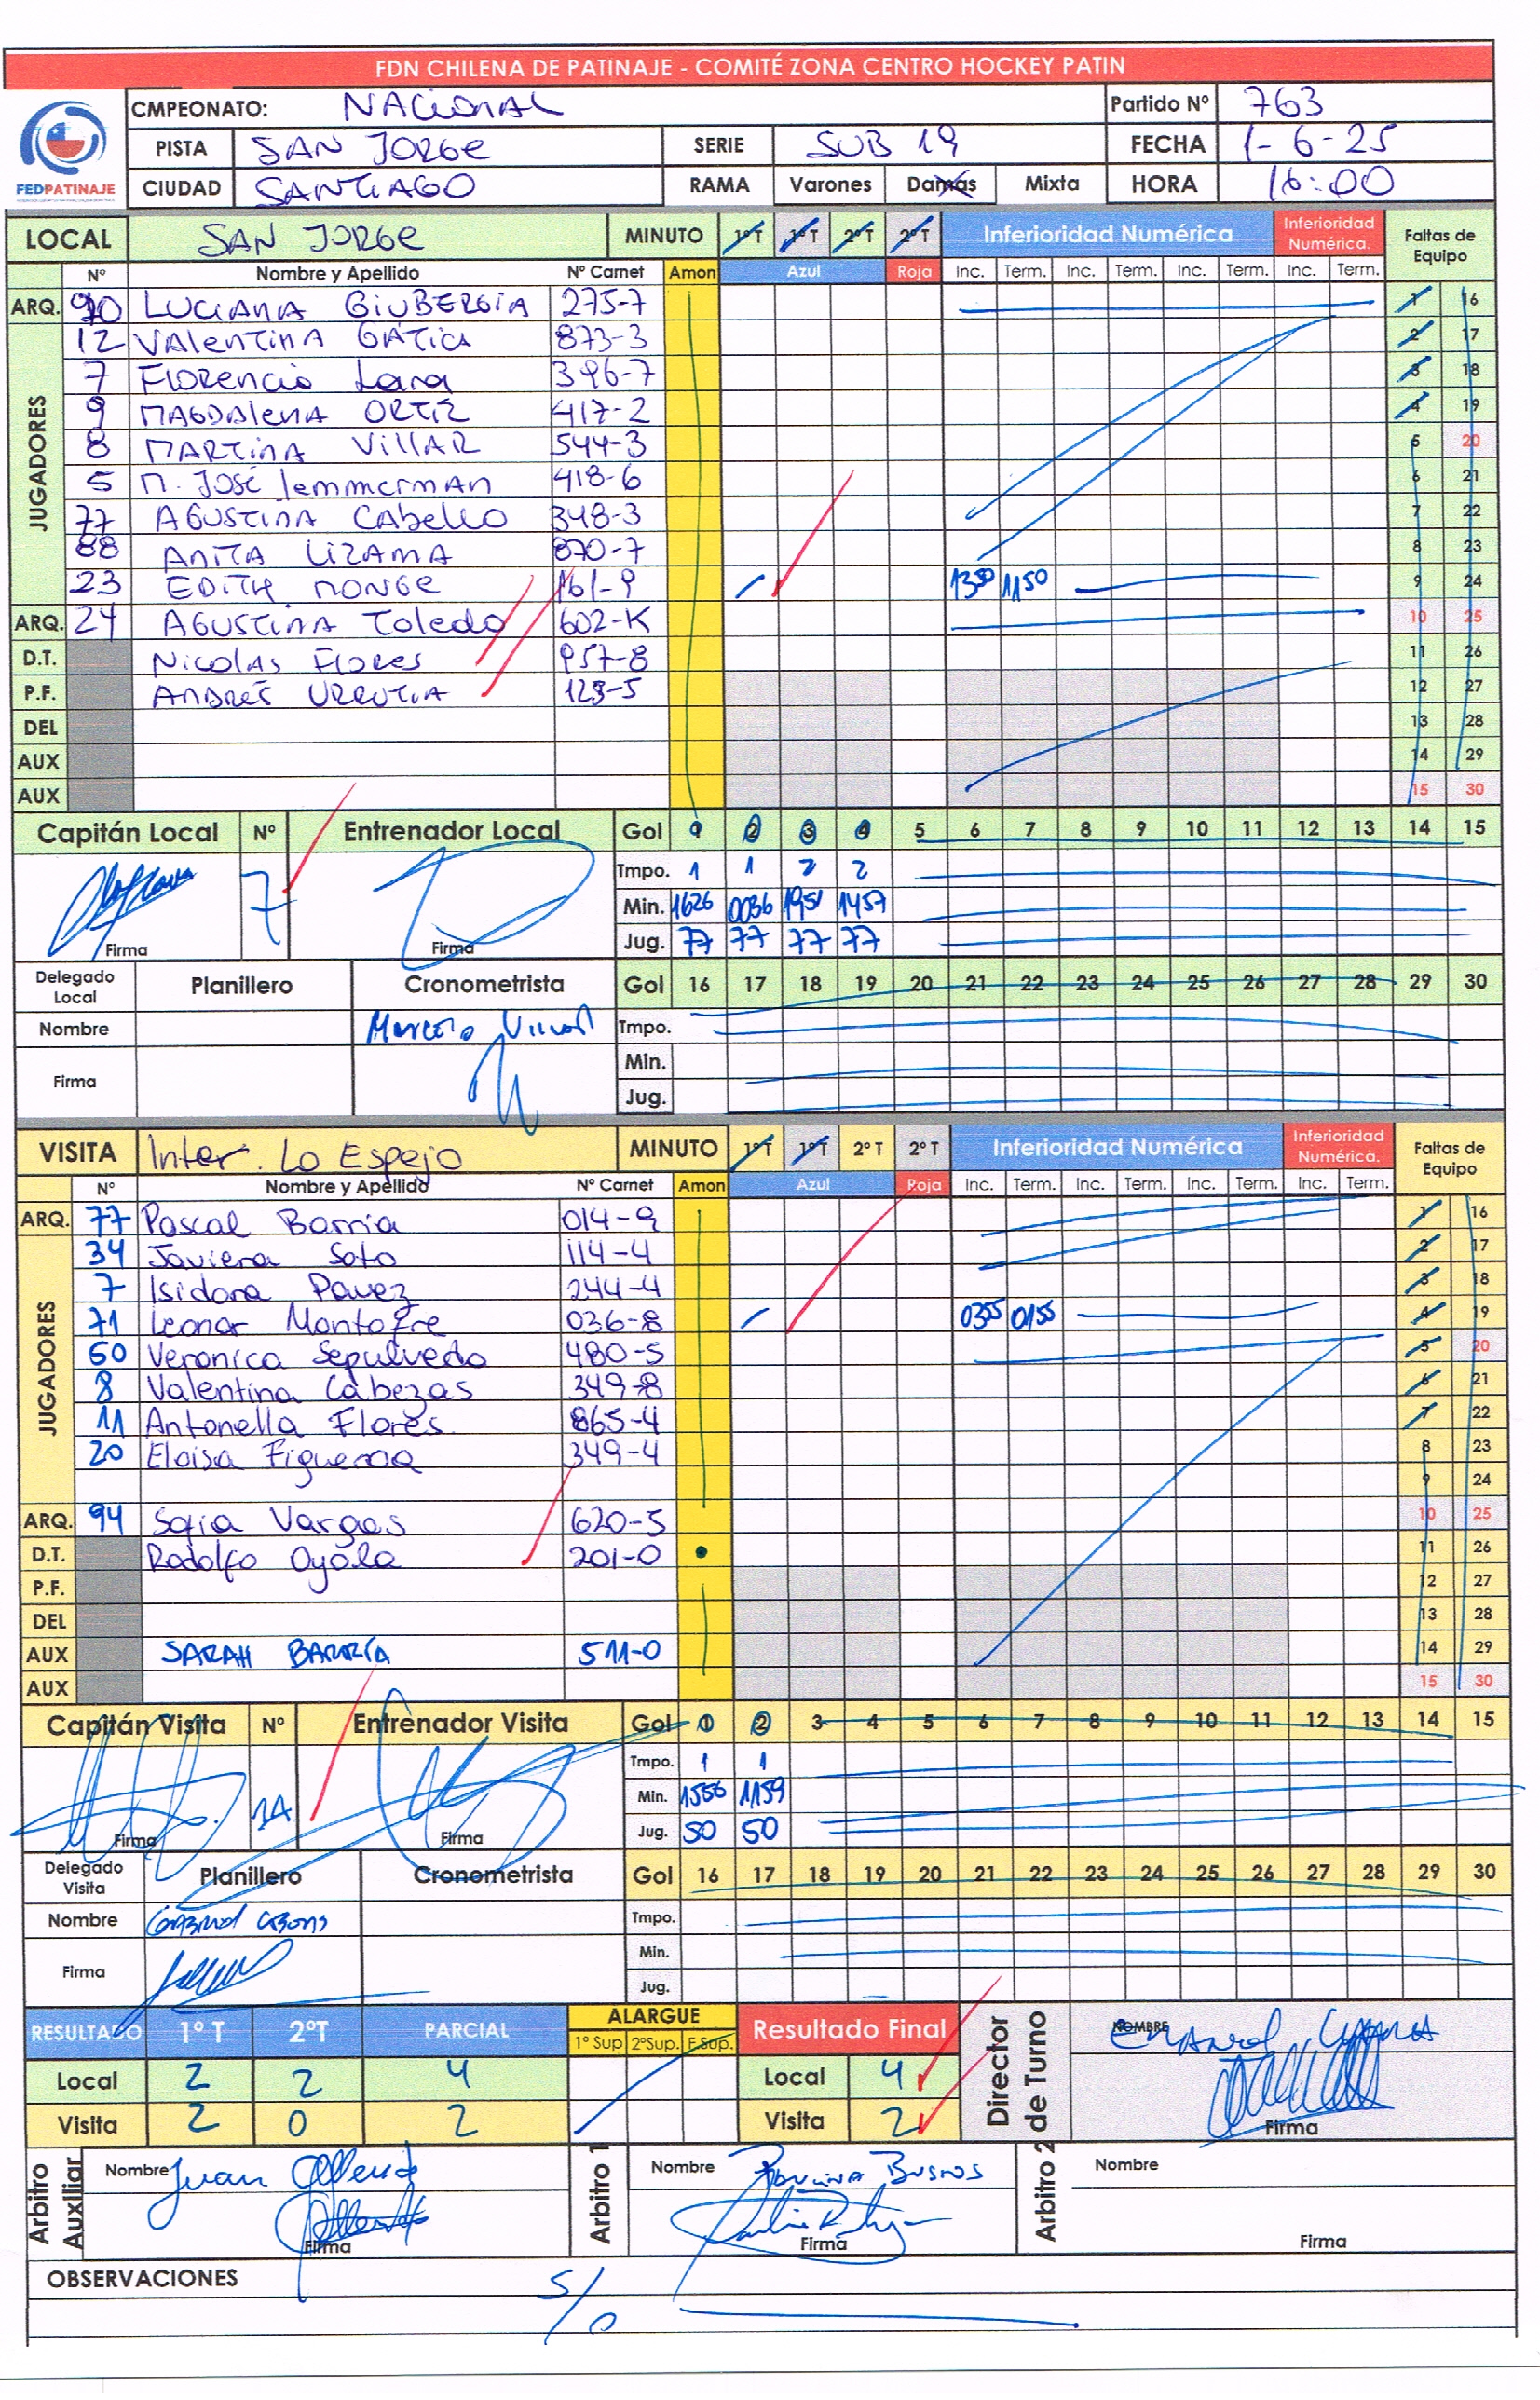 FDN CHILENA DE PATINAJE - COMITÉ ZONA CENTRO HOCKEY PATIN
CMPEONATO: NACIONAL Partido Nº 763
PISTA SAN JORGE SERIE SUB 19 FECHA 1-6-25
CIUDAD SANTIAGO RAMA Varones Damas Mixta HORA 16:00
FEDPATINAJE
LOCAL SAN JORGE MINUTO 1º T 1º T 2º T 2º T Inferioridad Numérica Inferioridad Numérica. Faltas de Equipo
Nº Nombre y Apellido Nº Carnet Amon Azul Roja Inc. Term. Inc. Term. Inc. Term. Inc. Term.
JUGADORES
ARQ. 90 LUCIANA GIUBERGIA 275-7 1 16
12 VALENTINA GÁTICA 873-3 2 17
7 FLORENCIA Lara 396-7 3 18
9 MAGDALENA ORTIZ 417-2 4 19
8 MARTINA VILLAR 544-3 5 20
5 M. JOSÉ lemmerman 418-6 6 21
77 AGUSTINA CABELLO 348-3 7 22
88 ANITA LIZAMA 870-7 8 23
23 EDITH MONGE 161-9 1350 1150 9 24
ARQ. 24 AGUSTINA Toledo 602-K 10 25
D.T. NICOLAS FLORES 957-8 11 26
P.F. ANDRÉS URRUTIA 12 27
DEL 13 28
AUX 14 29
AUX 15 30
Capitán Local Nº Entrenador Local Gol 1 2 3 4 5 6 7 8 9 10 11 12 13 14 15
Tmpo. 1 1 2 2
7 Min. 1626 0036 1951 1457
Firma Firma Jug. 77 77 77 77
Delegado Local Planillero Cronometrista Gol 16 17 18 19 20 21 22 23 24 25 26 27 28 29 30
Nombre Marcelo Villar Tmpo.
Min.
Firma Jug.
VISITA Inter. Lo Espejo MINUTO 1º T 1º T 2º T 2º T Inferioridad Numérica Inferioridad Numérica. Faltas de Equipo
Nº Nombre y Apellido Nº Carnet Amon Azul Roja Inc. Term. Inc. Term. Inc. Term. Inc. Term.
JUGADORES
ARQ. 77 Pascal Barria 014-9 1 16
34 Javiera Soto 114-4 2 17
7 Isidora Pavez 244-4 3 18
71 Leonor Montofre 036-8 0355 0155 4 19
50 Veronica Sepulveda 480-5 5 20
8 Valentina Cabezas 349-8 6 21
11 Antonella Flores 865-4 7 22
20 Eloisa Figueroa 349-4 8 23
9 24
ARQ. 94 Sofia Vargas 620-5 10 25
D.T. Rodolfo Ayala 201-0 11 26
P.F. 12 27
DEL 13 28
AUX SARAH BARRÍA 511-0 14 29
AUX 15 30
Capitán Visita Nº Entrenador Visita Gol 1 2 3 4 5 6 7 8 9 10 11 12 13 14 15
Tmpo. 1 1
Min. 1556 1159
Firma Firma Jug. 50 50
Delegado Visita Planillero Cronometrista Gol 16 17 18 19 20 21 22 23 24 25 26 27 28 29 30
Nombre Tmpo.
Firma Min.
Jug.
RESULTADO 1º T 2ºT PARCIAL ALARGUE Resultado Final Director de Turno NOMBRE
1º Sup 2ºSup. F.Sup.
Local 2 2 4 Local 4
Visita 2 0 2 Visita 2 Firma
Arbitro Auxiliar Nombre Juan Allende Arbitro 1 Nombre Paulina Bustos Arbitro 2 Nombre
Firma Firma Firma
OBSERVACIONES S/O